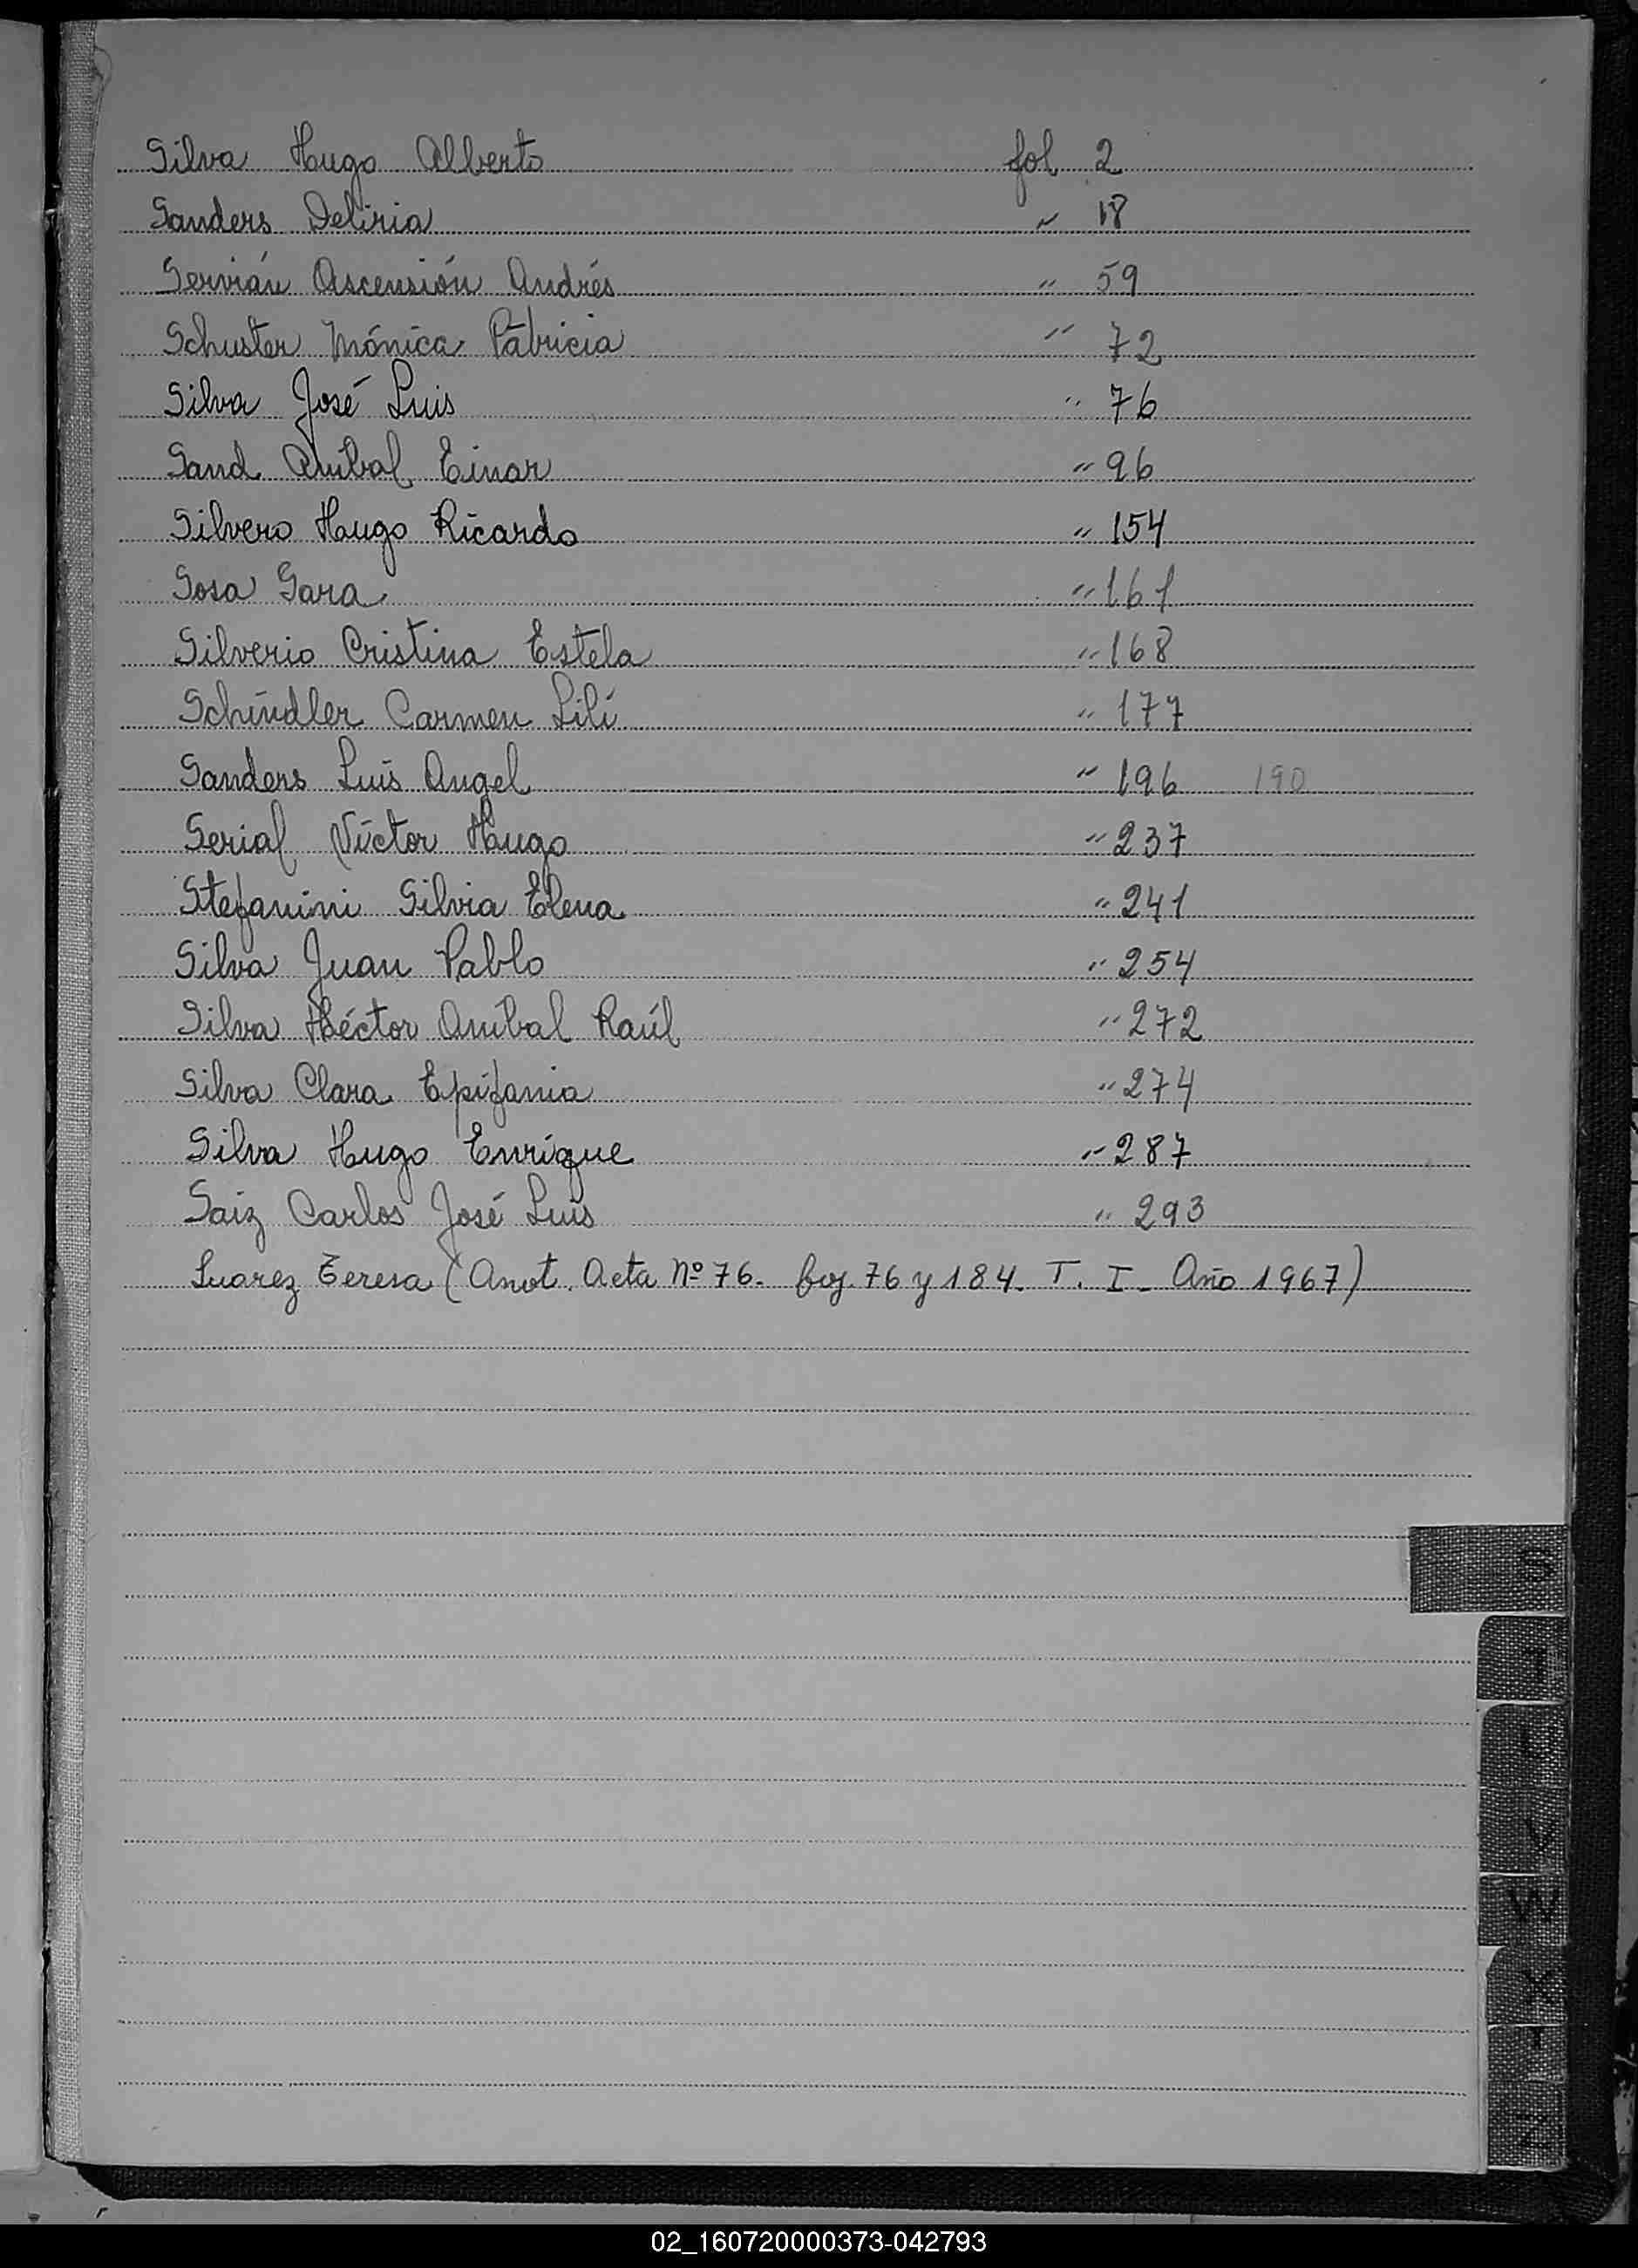 Silva Hugo Alberto fol 2
Sanders Deliria " 18
Servián Ascensión Andrés " 59
Schuster Mónica Patricia " 72
Silva José Luis " 76
Sand Anibal Einar " 96
Silvero Hugo Ricardo " 154
Sosa Sara " 161
Silverio Cristina Estela " 168
Schindler Carmen Lilí " 177
Sanders Luis Angel " 196 190
Serial Víctor Hugo " 237
Stefanini Silvia Elena " 241
Silva Juan Pablo " 254
Silva Héctor Anibal Raúl " 272
Silva Clara Epifania " 274
Silva Hugo Enrique " 287
Saiz Carlos José Luis " 293
Suarez Teresa (Anot. Acta Nº 76. foj. 76 y 184. T. I - Año 1967)
S
T
V
W
X
Z
02_160720000373-042793